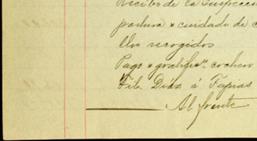 Recibo de la Inspeccion
pastura & cuidado de
recogidos
Pago & gratifn. cochero
Diaz á Tapias
Al frente